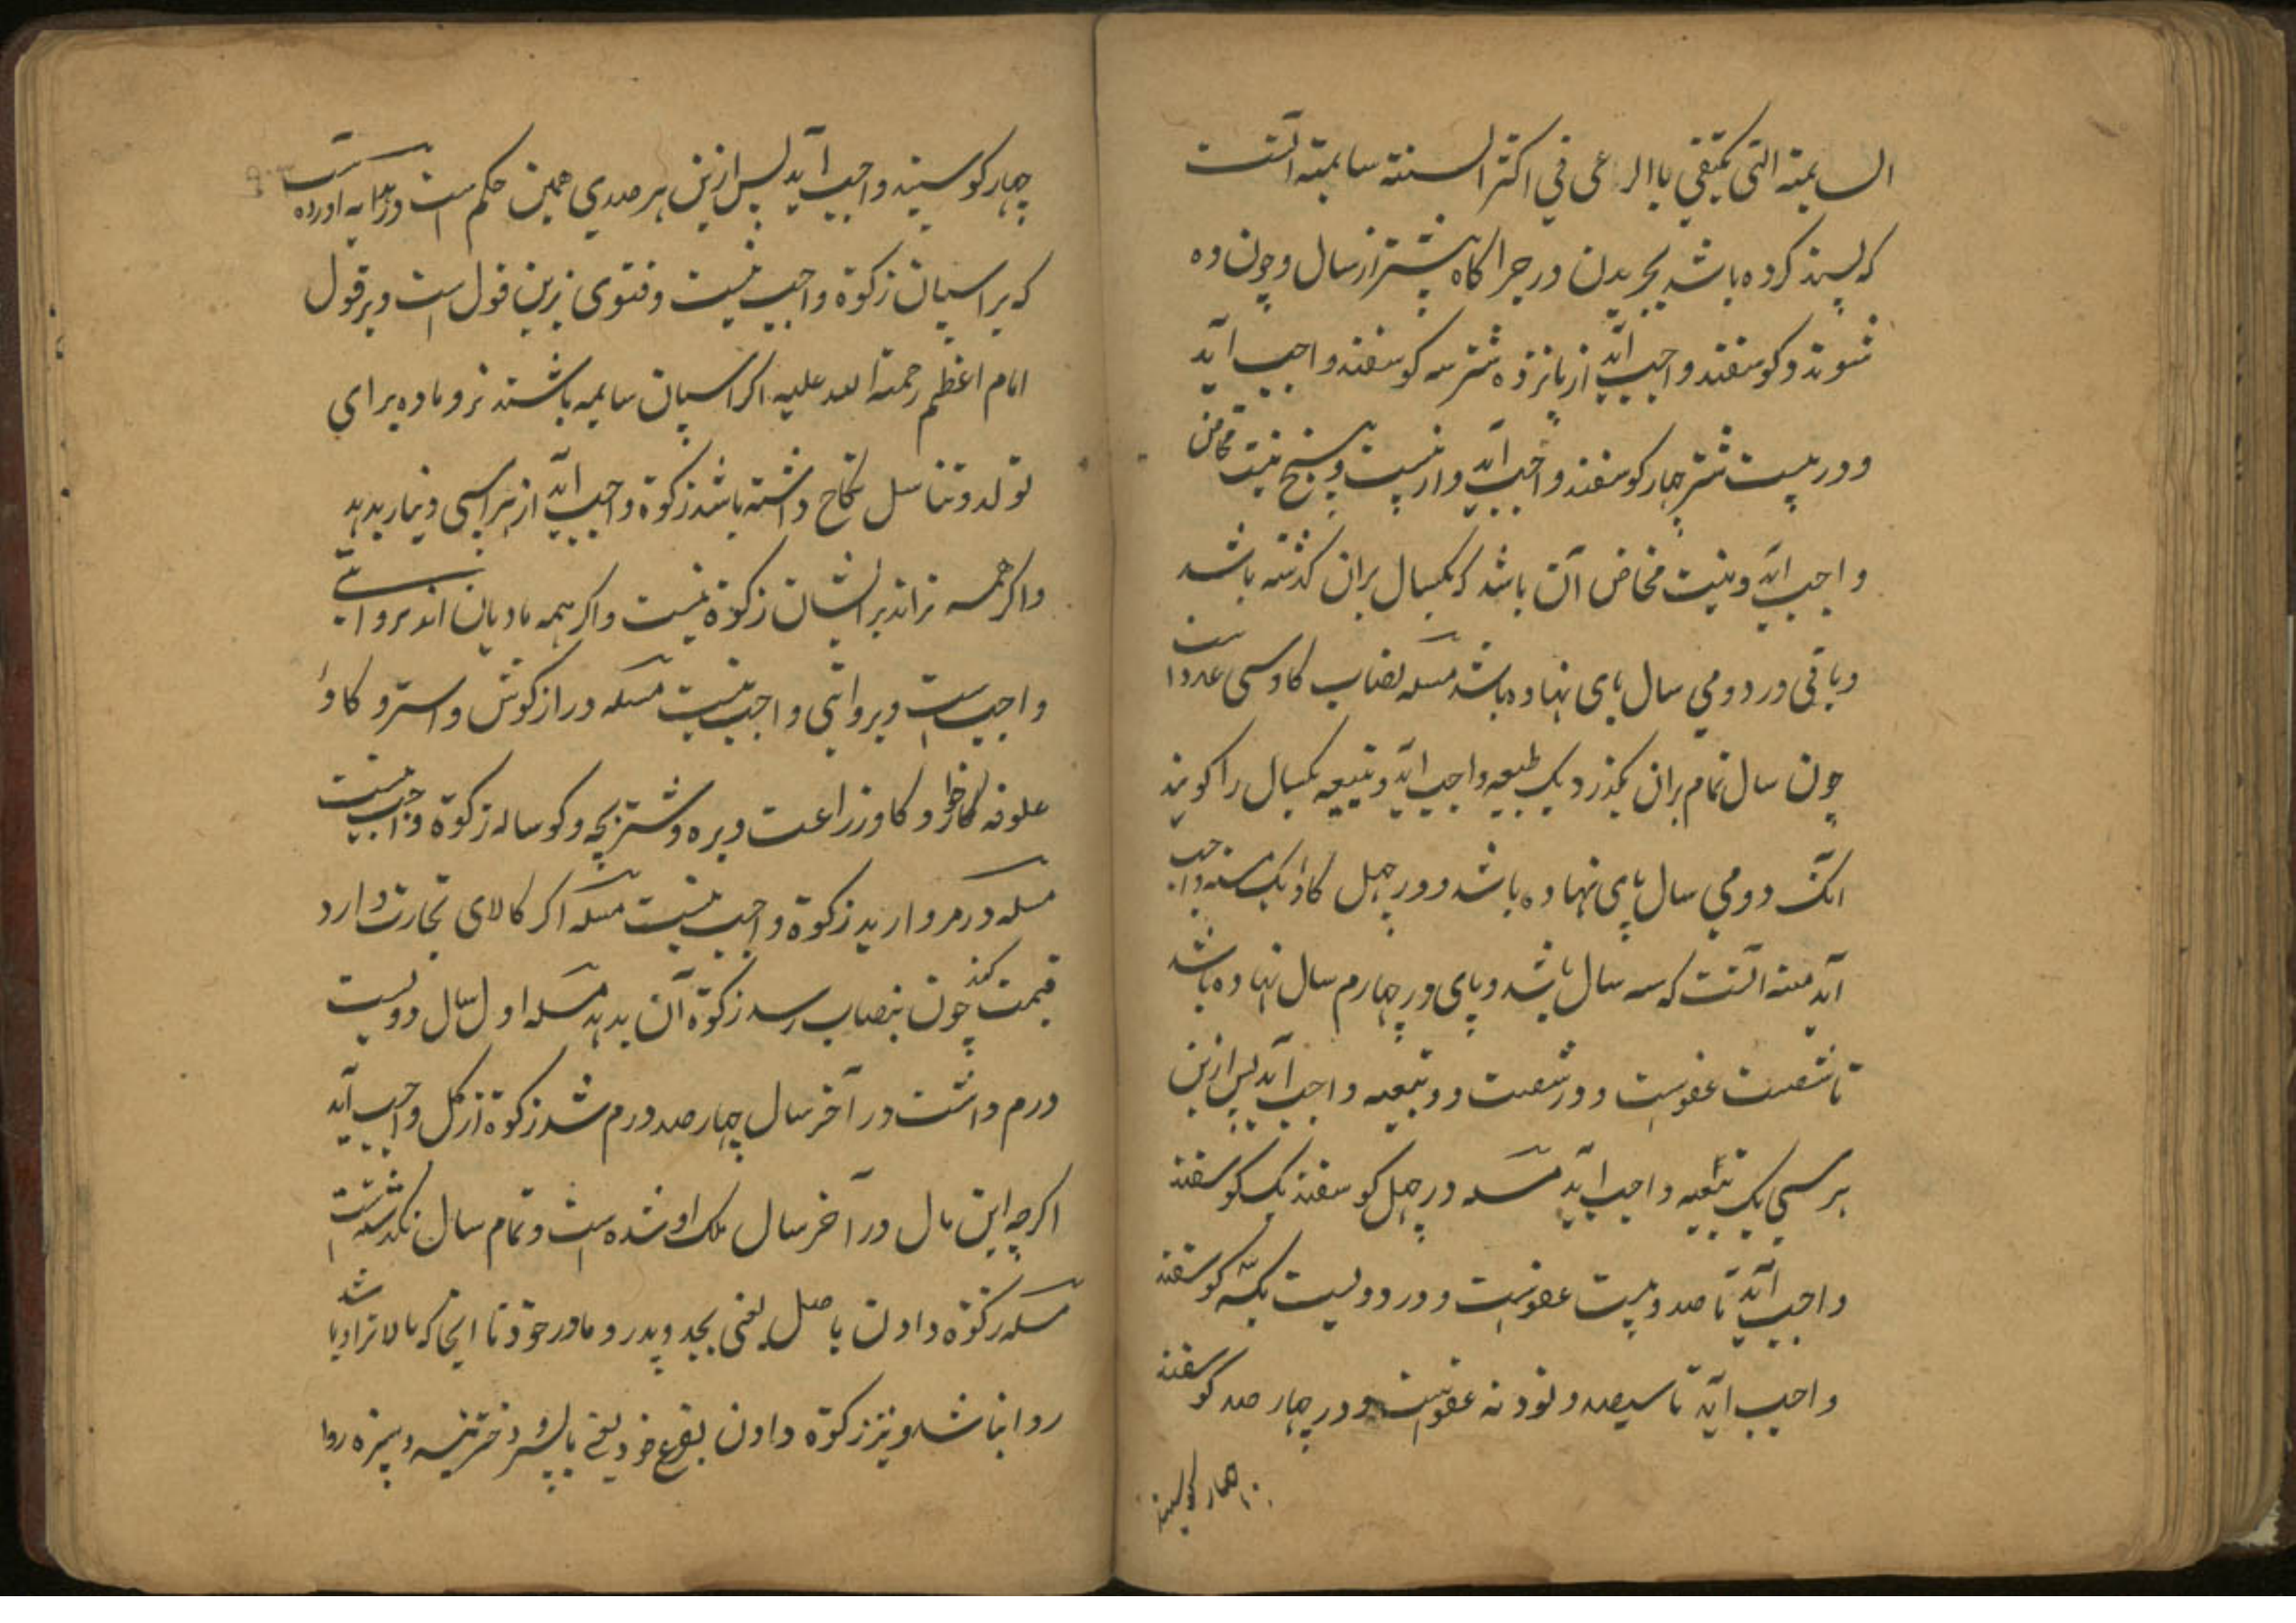 السایمة التی یکتفی باالرعی فی اکثر السنته سایمته آنست
که پسند کرده باشد بچریدن در چراکاه بیشتر از سال و چون ده
شوند دو کوسفند واجب آید از پانزده شتر سه کوسفند واجب آید
و در بیست شتر چهار کوسفند واجب آید و از بیست و پنج بنیت مخاض
واجب آید و بنیت مخاض آن باشد که یکسال بران کذشته باشد
و باقی در دومی سال پای نهاده باشد مسئله نصاب کاو سی عدد است
چون سال تمام بران بکذرد یک طبیعه واجب آید و تبیعه یکسال را کویند
انک دومی سال پای نهاده باشد و در چهل کاو یک مسنه واجب
آید مسنه آنست که سه سال باشد و پای در چهارم سال نهاده باشد
تا شصت عفوست و در شصت دو تبیعه واجب آید پس ازین
بر سی یک تبیعه واجب آید مسئله در چهل کوسفند یک کوسفند
واجب آید تا صد و بیست عفوست و در دویست یک سه کوسفند
واجب آید تا سیصد و نود نه عفوست و در چهار صد کوسفند
چهار کوسپند
چهار کوسپند واجب آید پس ازین بر صدی همین حکم است و در هدایه آورده است
که بر اسپان زکوة واجب نیست و فتوی برین قول است و بر قول
امام اعظم رحمة الله علیه اکر اسپان سایمه باشند نر و ماده برای
تولد و تناسل نکاح داشته باشد زکوة واجب آید از هر اسپی دینار بدهد
و اکر همه نر اند بر ایشان زکوة نیست و اکر همه مادیان اند بروایتی
واجب است و بروایتی واجب نیست مسئله در ازکوش و استر و کاو
علوفه کارخوا و کاو زراعت و بره و شتر بچه و کوساله زکوة واجب نیست
مسئله در مروارید زکوة واجب نیست مسئله اکر کالای تجارت دارد
قیمت کند چون بنصاب رسد زکوة آن بدهد مسئله اول سال دویست
درم داشت در آخر سال چهار صد درم شد زکوة از کل واجب آید
اکرچه این مال در آخر سال ملک او شده است و تمام سال نکذشته است
مسئله زکوة دادن باصل یعنی بجد و پدر و مادر خود تا اینجا که بالاتر او باشد
روا نباشد و نیز زکوة دادن بفرع خود یعنی بپسر و دختر نبسه و نبیره روا